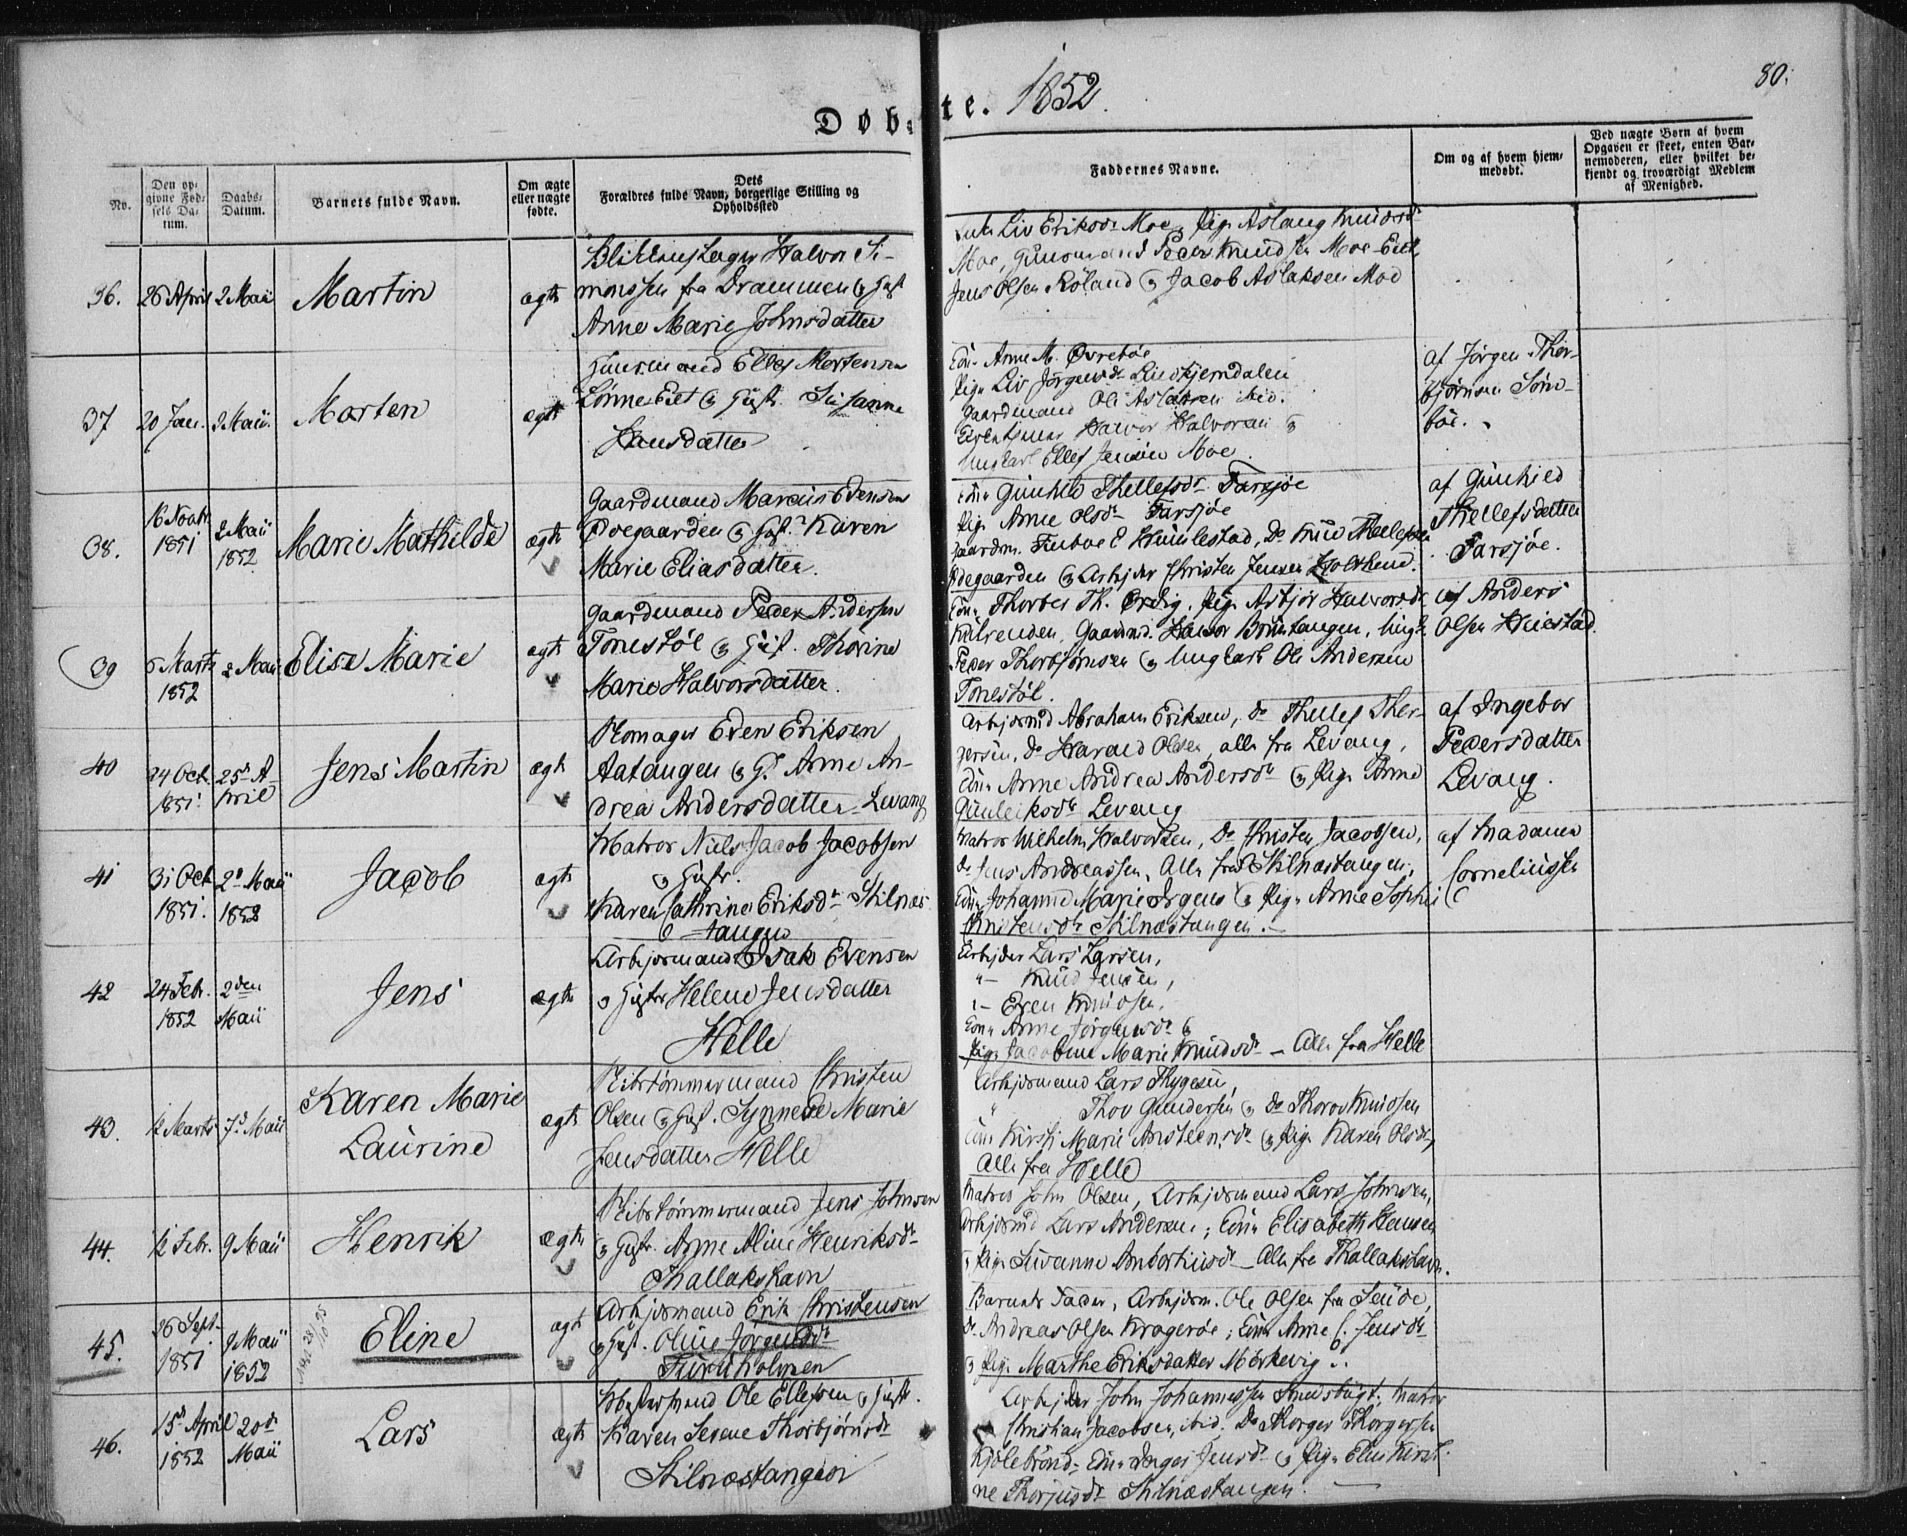 80.
Døbte. 1852.
No.
Den opgivne Fødsels Datum.
Daabs-Datum.
Barnets fulde Navn.
Om ægte eller uægte fødte.
Dets Forældres fulde Navn, borgerlige Stilling og Opholdssted
Faddernes Navne.
Om og af hvem hjemmedøbt.
Ved uægte Børn af hvem Opgaven er skeet, enten Barnemoderen, eller hvilket bekjendt og troværdigt Medlem af Menighed.
36. 26 April 2 Maii Martin ægte
Halvor Si-
monssen fra Drammen og Hust
Anne Marie Johnsdatter
Liv Eriksdr Moe, Pige Aslaug Knudsdr
Moe, Huusmand Peder Knudsen Moe-Eiet
Jens Olsen Røland og Jacob Aslaksen Moe
37 20 Jan. 2 Maii Morten ægte
Huusmand Ellef Mortensen
Lønne-Eiet og Hust. Susanne
Hansdatter
Kone Anne M. Øvrebøe
Pige Liv Jørgensdr Lindkjerndalen
Gaardmand Ole Aslaksen ibid.
Halvor Halvorsen og
Ungkarl Ellef Jensen Moe.
af Jørgen Thor-
bjørnsen Søm-
bøe.
38. 16 Novbr 1851 2 Maii 1852 Marie Mathilde ægte
Gaardmand Marcus Evensen
Ødegaarden og Hust. Karen
Marie Eliasdatter.
Kone Gunhild Thellefsdr Farsjøe
Pige Anne Olsdr Farsjøe
Gaardm. Humlestad, Do Knud Thellefsen
Ødegaarden og Arbejder Christen Jensen
af Gunhild
Thellefsdatter
Farsjøe.
39 Marts 1852 2 Maii Elise Marie ægte
Gaardmand Peder Andersen
Tonestøl og Hust. Thorine
Marie Halvorsdatter.
Kone Thorber Th. Pige Asbjør Halvorsdr
Gaardmd. Halvor Ungk.
Peder Thorbjørnsen og Ungkarl Ole Andersen
Tonestøl.
af Anders
Olsen
40 24 Oct. 1851. 25d A-
pril Jens Martin ægte
Romager Even Eriksen
Aatangen og H. Anne An-
drea Andersdatter Levang
Arbejdsmd Abraham Eriksen, do Thellef Ther-
gersen, do Harald Olsen, alle fra Levang,
Kone Anne Andrea Andersdr og Pige Anne
Gunleiksdr Levang
af Ingebor
Pedersdatter
Levang.
41 31 Oct. 1851. 2d Maii 1852 Jacob ægte
Matros Niels Jacob Jacobsen
og Hustr.
Karen Cathrine Eriksdr Stilnæs-
tangen
Matros Wilhelm Halvorsen, Do Christen Jacobsen,
do Jens Andreassen, Alle fra Stilnæstangen,
Kone Johanne Marie Irgens og Pige Anne Sophie
Christensdr Stilnæstangen.
af Madame
Corneliussen
42 24 Febr. 1852 2den Maii Jens ægte
Arbejdsmand Isak Evensen
og Hustr Helene Jensdatter
Helle
Arbejder Lars Larsen,
"- Knud Jensen,
"- Even Knudsen,
Kone Anne Jørgensdr &
Pige Jacobine Marie Knudsdr - Alle fra Helle
43. 12 Marts 7d Maii Karen Marie
Laurine ægte
Skibstømmermand Christen
Olsen og Hust. Synneve Marie
Jensdatter Helle
Arbejdsmand Lars Thygesen,
" Thov Gundersen og do Thorov Knudsen
Kone Kirsti Marie Ansteensdr og Pige Karen Olsdr,
Alle fra Helle
44. 12 Febr. 9 Maii Henrik ægte
Skibstømmermand Jens Johnsen
og Hustr. Anne Aline Henriksdr
Thallakshavn
Matros John Olsen, Arbejdsmand Lars Johnsen,
Arbejdsmd Lars Andersen; Kone Elisabeth Hansen
og Pige Susanne Amborniusdr - Alle fra Thallakshavn.
45. 26 Sept. 1851 9 Maii 1852 Eline ægte
Arbejdsmand Erik Christensen
og Hust. Oline Jørgensdr
Furuholmen
Barnets Fader, Arbejdsm. Ole Olsen fra
do Andreas Olsen Kragerøe; Kone Anne C. Jensdr
og Pige Marthe Eriksdatter Mørkevig.
46. 15d April 1852 20de Maii Lars ægte
Ole Ellefsen og Hust.
Karen Serene Thorbjørnsdr
Stilnæstangen
Arbejder John Johannessen Matros
Christian Jacobsen, ibid. Do Thorger Thorgersen
Kjølebrønd - Kone Inger Jensdr og Pige Eline Kirsti-
ne Thorjusdr Stilnæstangen.